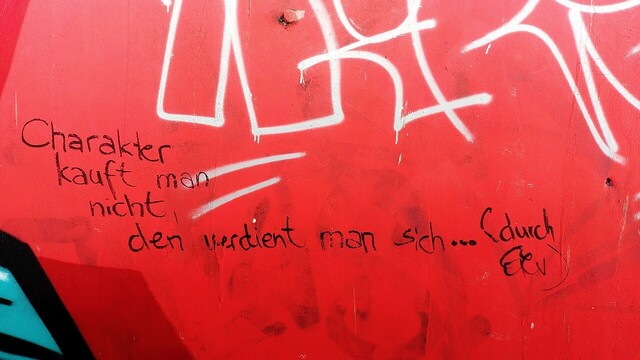 Charakter
kauft man
nicht,
den verdient man sich... (durch